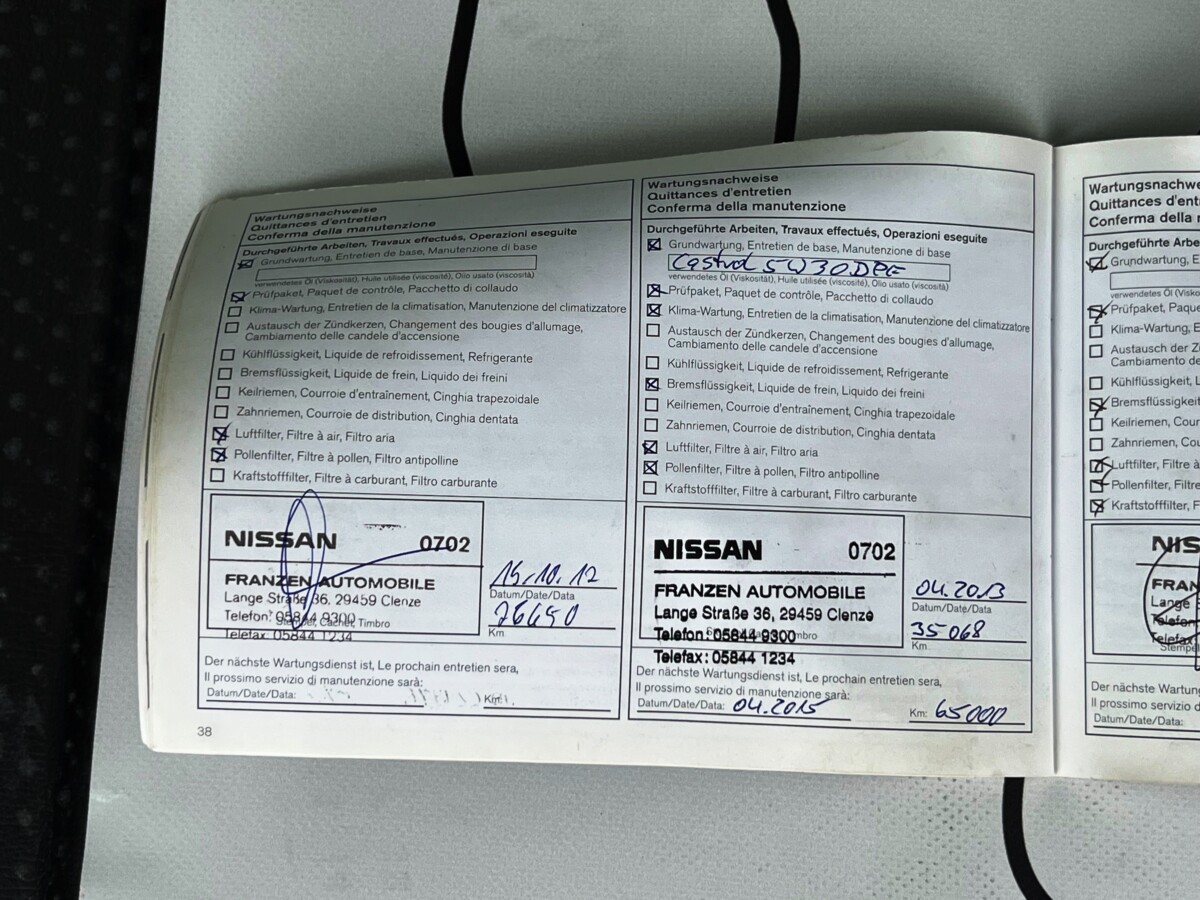 Wartungsnachweise
Quittances d'entretien
Conferma della manutenzione
Durchgeführte Arbeiten, Travaux effectués, Operazioni eseguite
Grundwartung, Entretien de base, Manutenzione di base
verwendetes Öl (Viskosität), Huile utilisée (viscosité), Olio usato (viscosità)
Prüfpaket, Paquet de contrôle, Pacchetto di collaudo
Klima-Wartung, Entretien de la climatisation, Manutenzione del climatizzatore
Austausch der Zündkerzen, Changement des bougies d'allumage,
Cambiamento delle candele d'accensione
Kühlflüssigkeit, Liquide de refroidissement, Refrigerante
Bremsflüssigkeit, Liquide de frein, Liquido dei freini
Keilriemen, Courroie d'entraînement, Cinghia trapezoidale
Zahnriemen, Courroie de distribution, Cinghia dentata
Luftfilter, Filtre à air, Filtro aria
Pollenfilter, Filtre à pollen, Filtro antipolline
Kraftstofffilter, Filtre à carburant, Filtro carburante
NISSAN 0702
FRANZEN AUTOMOBILE
Lange Straße 36, 29459 Clenze
Telefon: 05844 9300
Stempel, Cachet, Timbro
Telefax: 05844 1234
15.10.12
Datum/Date/Data
26650
Km
Der nächste Wartungsdienst ist, Le prochain entretien sera,
Il prossimo servizio di manutenzione sarà:
Datum/Date/Data: Km:
38
Wartungsnachweise
Quittances d'entretien
Conferma della manutenzione
Durchgeführte Arbeiten, Travaux effectués, Operazioni eseguite
Grundwartung, Entretien de base, Manutenzione di base
Castrol 5W30 DPF
verwendetes Öl (Viskosität), Huile utilisée (viscosité), Olio usato (viscosità)
Prüfpaket, Paquet de contrôle, Pacchetto di collaudo
Klima-Wartung, Entretien de la climatisation, Manutenzione del climatizzatore
Austausch der Zündkerzen, Changement des bougies d'allumage,
Cambiamento delle candele d'accensione
Kühlflüssigkeit, Liquide de refroidissement, Refrigerante
Bremsflüssigkeit, Liquide de frein, Liquido dei freini
Keilriemen, Courroie d'entraînement, Cinghia trapezoidale
Zahnriemen, Courroie de distribution, Cinghia dentata
Luftfilter, Filtre à air, Filtro aria
Pollenfilter, Filtre à pollen, Filtro antipolline
Kraftstofffilter, Filtre à carburant, Filtro carburante
NISSAN 0702
FRANZEN AUTOMOBILE
Lange Straße 36, 29459 Clenze
Telefon: 05844 9300
Telefax: 05844 1234
04.2013
Datum/Date/Data
35068
Km
Der nächste Wartungsdienst ist, Le prochain entretien sera,
Il prossimo servizio di manutenzione sarà:
Datum/Date/Data: 04.2015 Km: 65000
Wartungsnachwe
Quittances d'ent
Conferma della
Durchgeführte Arbe
Grundwartung, E
verwendetes Öl (Visk
Prüfpaket, Paque
Klima-Wartung, E
Austausch der Zü
Cambiamento de
Kühlflüssigkeit, L
Bremsflüssigkeit
Keilriemen, Cour
Zahnriemen, Cou
Luftfilter, Filtre à
Pollenfilter, Filtre
Kraftstofffilter, F
NIS
FRAN
Lange
Telefon
Telefax
Stempel
Der nächste Wartung
Il prossimo servizio d
Datum/Date/Data: